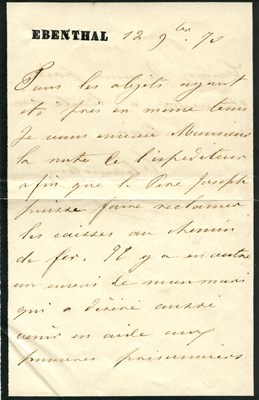 EBENTHAL 12 9bre 70
Tous les objets ayant
été pris en même tems
Je vous envoie Monsieur
la note de l'expéditeur
afin que le Père Joseph
puisse faire réclamer
les caisses au chemin
de fer. Il y a en outre
un envoi de mon mari
qui a désiré aussi
venir en aide aux
prisonniers